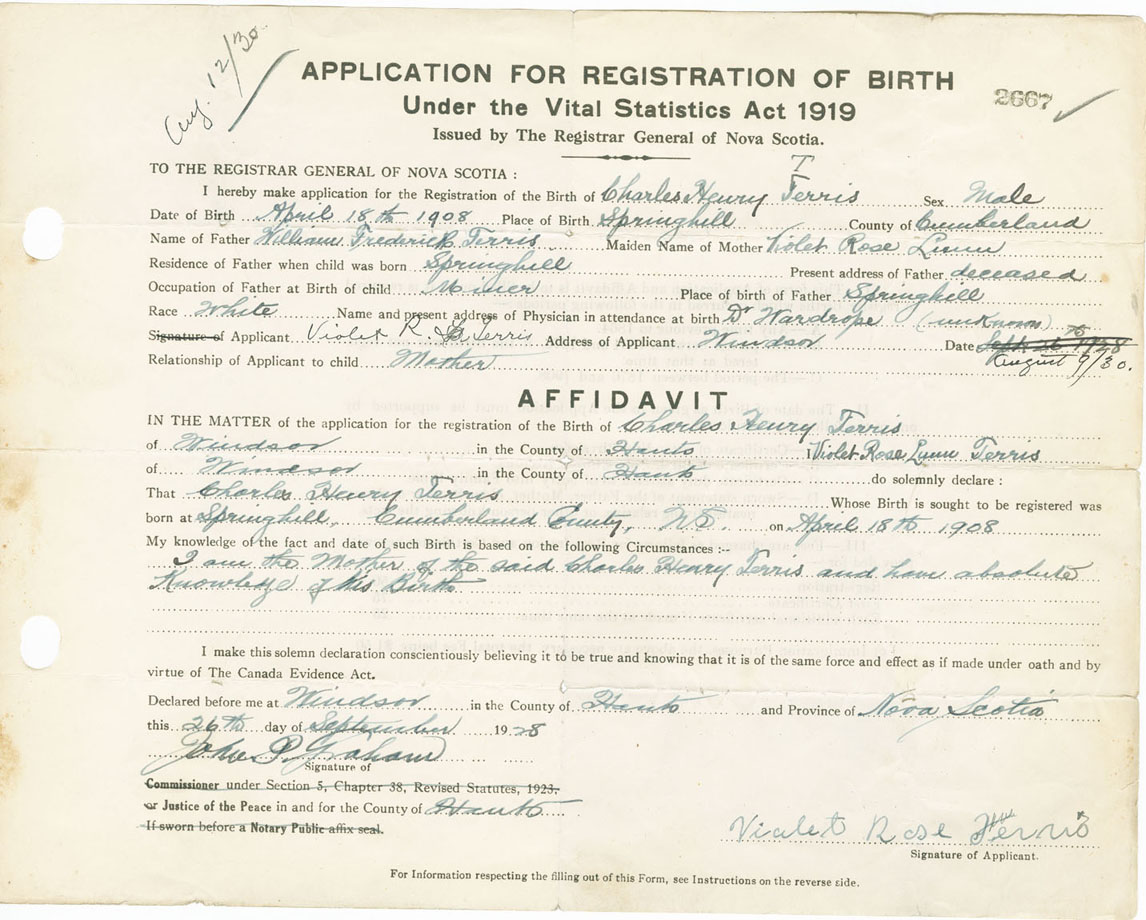 Aug. 12/30
APPLICATION FOR REGISTRATION OF BIRTH
2667
Under the Vital Statistics Act 1919
Issued by The Registrar General of Nova Scotia.
T
TO THE REGISTRAR GENERAL OF NOVA SCOTIA :
I hereby make application for the Registration of the Birth of Charles Henry Terris Sex Male
Date of Birth April 18th 1908 Place of Birth Springhill County of Cumberland
Name of Father William Frederick Terris Maiden Name of Mother Violet Rose Lunn
Residence of Father when child was born Springhill Present address of Father deceased
Occupation of Father at Birth of child Miner Place of birth of Father Springhill
Race White Name and present address of Physician in attendance at birth Dr Wardrope (unknown)
Signature of Applicant Violet R. L. Terris Address of Applicant Windsor Date Sept. 26th 1928
August 9/30.
Relationship of Applicant to child Mother
AFFIDAVIT
IN THE MATTER of the application for the registration of the Birth of Charles Henry Terris
of Windsor in the County of Hants I Violet Rose Lunn Terris
of Windsor in the County of Hants do solemnly declare :
That Charles Henry Terris Whose Birth is sought to be registered was
born at Springhill, Cumberland County, N.S. on April 18th 1908
My knowledge of the fact and date of such Birth is based on the following Circumstances :--
I am the Mother of the said Charles Henry Terris and have absolute
Knowledge of his Birth
I make this solemn declaration conscientiously believing it to be true and knowing that it is of the same force and effect as if made under oath and by
virtue of The Canada Evidence Act.
Declared before me at Windsor in the County of Hants and Province of Nova Scotia
this 26th day of September 1928
John P. Graham
Signature of
Commissioner under Section 5, Chapter 38, Revised Statutes, 1923.
or Justice of the Peace in and for the County of Hants
If sworn before a Notary Public affix seal.
Violet Rose Terris
Signature of Applicant.
For Information respecting the filling out of this Form, see Instructions on the reverse side.